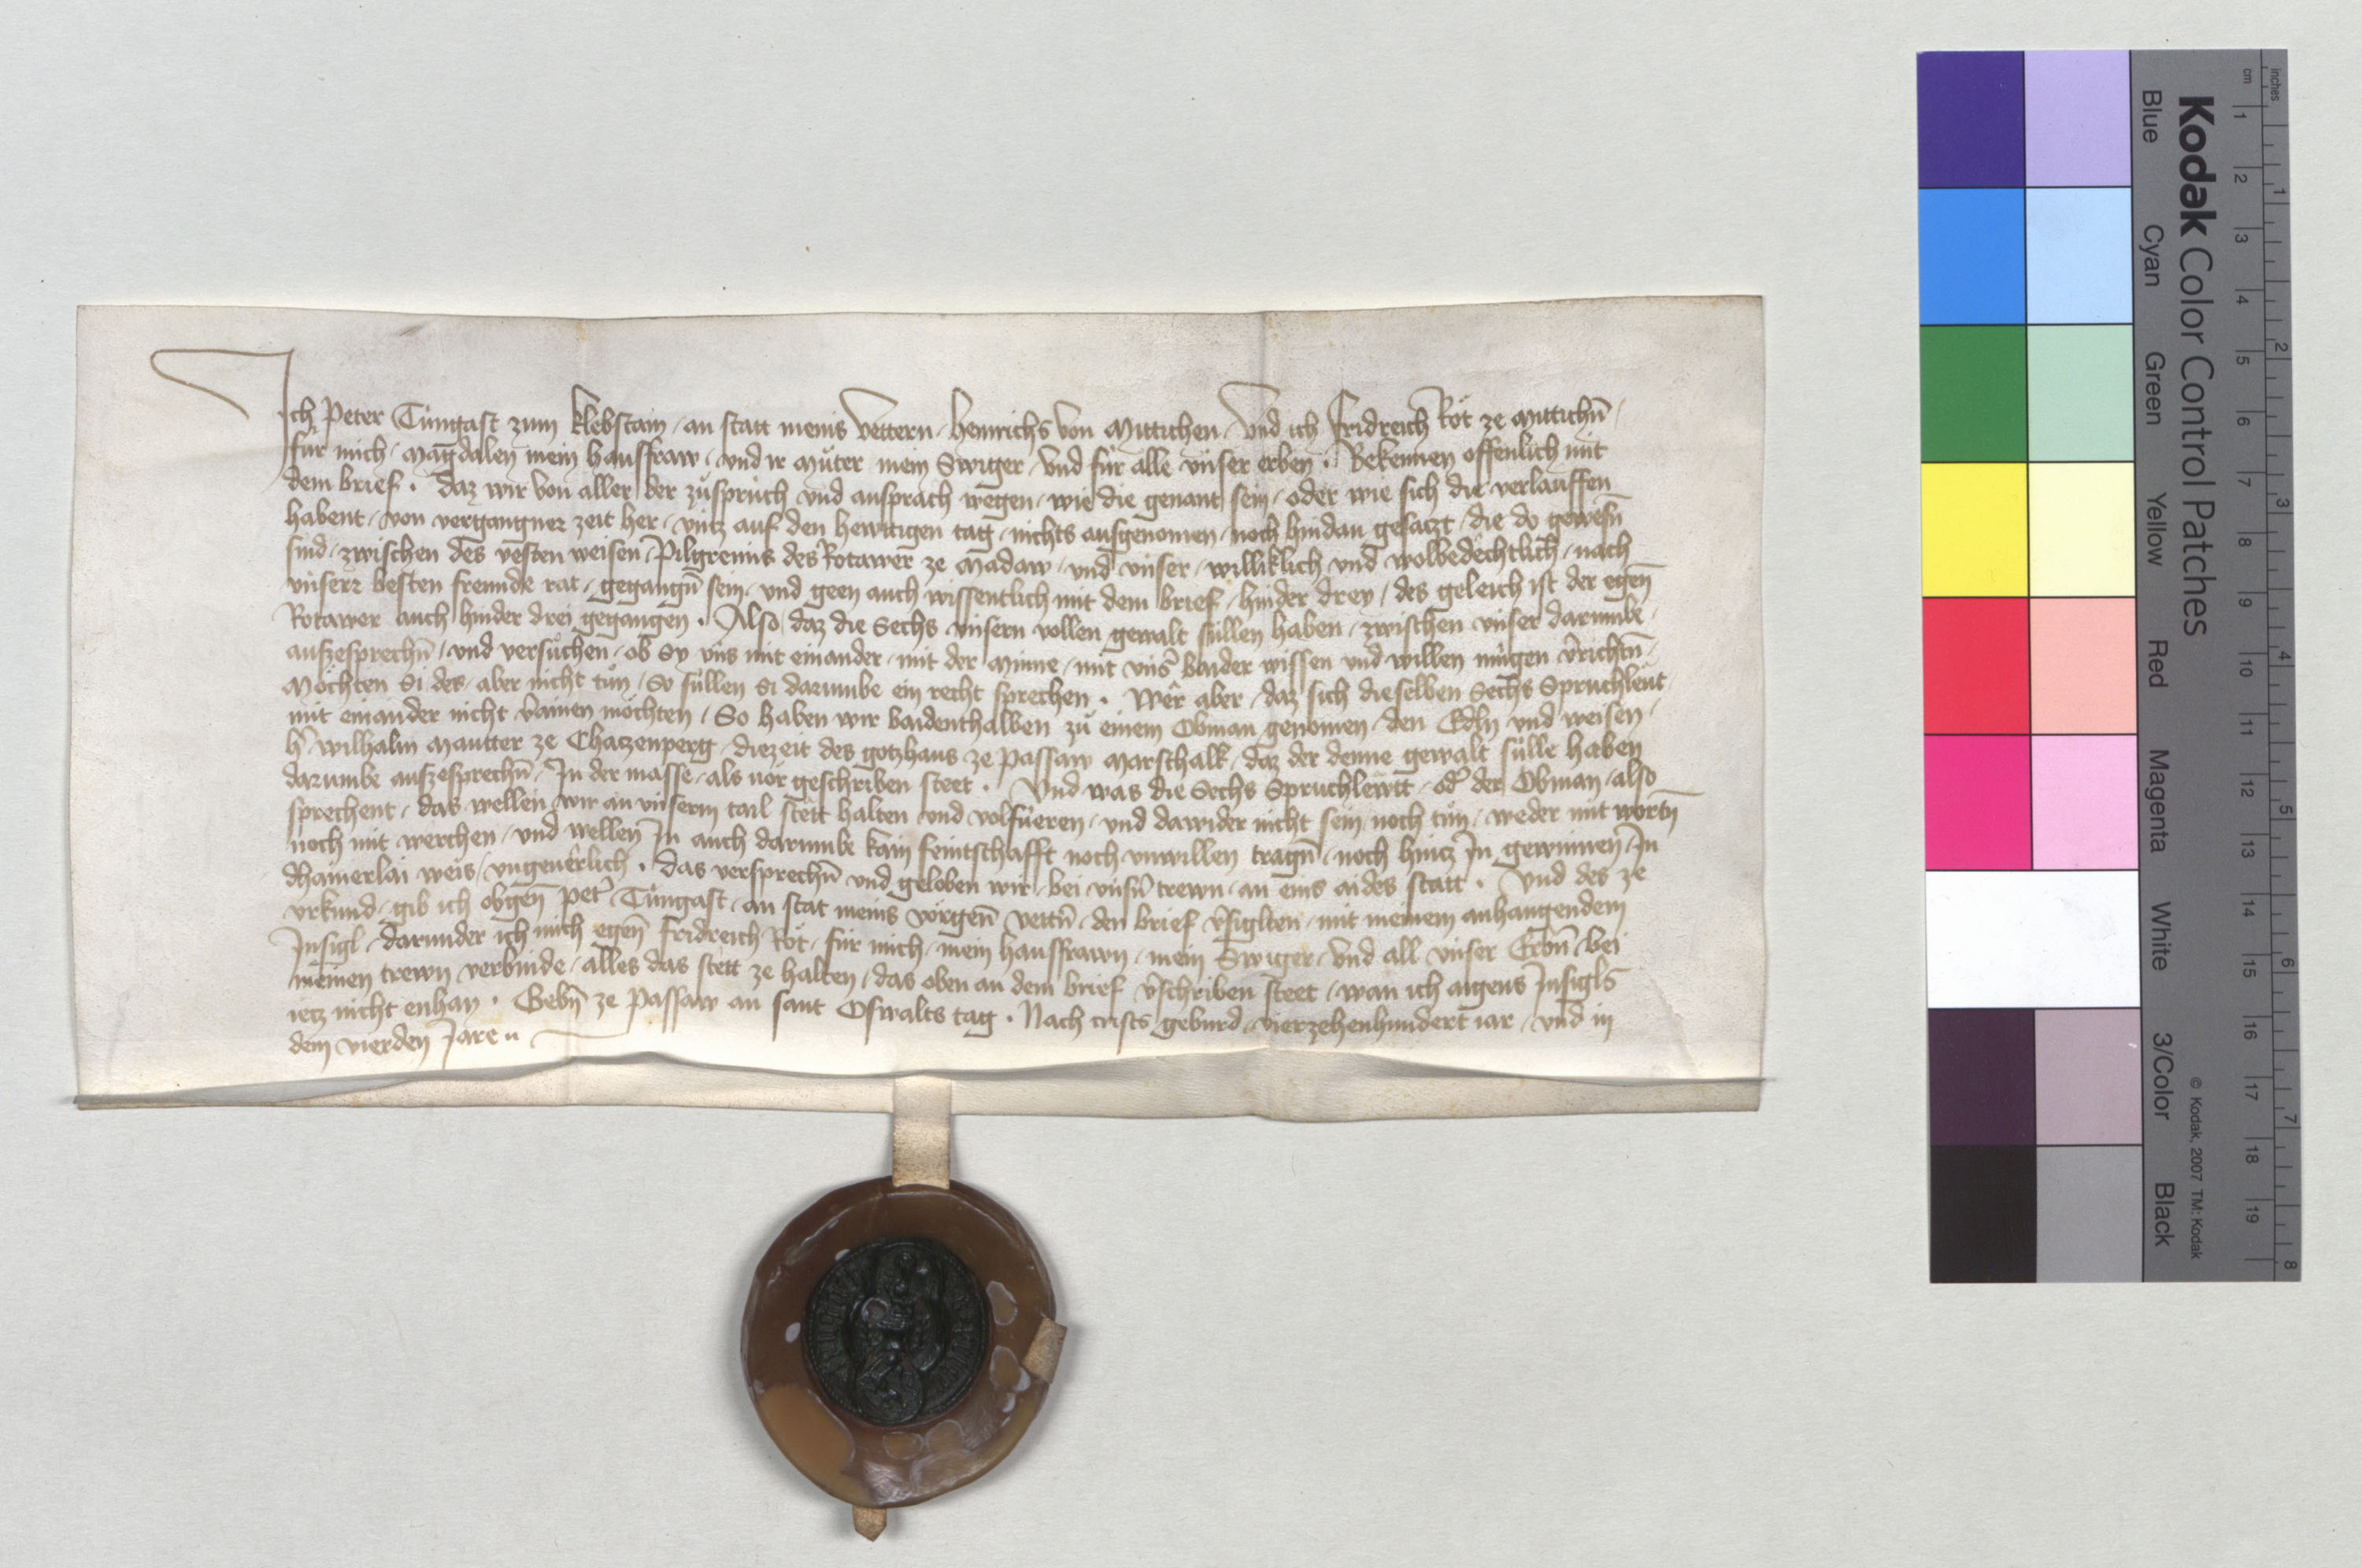 Ich Peter Tumgast zum klebstain / an statt meins Vettern / Heinrichs von Mittichen / Vnd ich Fridreich Röt ze Mittichn̄ /
für mich / Magdalen mein hausfraw / vnd ir můter mein Swiger / Vnd für alle vnser erben · Bekennen offenlich mit
dem brief · daz wir von aller der zůsprüch vnd ansprach wegen / wie die genant sein / oder wie sich die verlauffen
habent / von vergangner zeit her / vntz auf den hewttigen tag / nichts ausgenomen / noch hindan gesatzt / die do gewesn̄
sind / zwischen des vesten weisen / Pilgreims des Rotawer ze Madaw / vnd vnser / williklich vnd wolbedechtlich / nach
vnserr besten freunde rat / gegangn̄ sein / vnd geen auch wissentlich mit dem brief / hinder drey / des geleich ist der egen̄
Rotawer auch hinder drei gegangen · Also daz die Sechs vnsern vollen gewalt süllen haben / zwischen vnser darumbe /
auszesprechn̄ / vnd versůchen / ob Sy vns mit einander / mit der Minne / mit vns̄ baider wissen vnd willen mügen v̄richtn̄ /
Möchten Si des / aber nicht tůn / So süllen Si darumbe ein recht sprechen · Wer aber / daz sich dieselben Sechs Spruchleut
mit einander nicht v̄ainen möchten / So haben wir baidenthalben zů einem Obman genomen / den Edln vnd weisen /
h̄ Wilhalm Mautter ze Chatzenperg / diezeit des gotzhaus ze Passaw Marschalk / daz der denne gewalt sülle haben
darumbe auszesprechn̄ / In der masse / als vor geschriben steet · Vnd was die Sechs Spruchlewtt / od̄ der Obman / also
sprechent / das wellen wir an vnserm tail stett halten vnd volfüeren / vnd dawider nicht sein noch tůn / weder mit wortn̄
noch mit werchen / vnd wellen In auch darumbe kain feintschafft noch vnwillen tragn̄ / noch hintz In gewinnen / In
dhainerlai weis / vngeuerlich · das versprechn̄ vnd geloben wir / bei vnsn̄ trewn / an eins aides statt · Vnd des ze
vrkund / gib ich obgen̄ Pet̄ Tumgast / an stat meins vorgen̄ vettn̄ / den brief v̄siglten / mit meinem anhangendem
Insigl / darunder ich mich egen̄ Fridreich Röt / für mich / mein hausfrawn / mein Swiger / vnd all vnser Erbn̄ / bei
meinen trewn / verbinde / alles das stett ze halten / das oben an dem brief v̄schriben steet / wan ich aigens Insigls
ietz nicht enhan · Gebn̄ ze Passaw an sant Oswalts tag · Nach crists geburd / vierzehenhundert iar / vnd in
dem vierden Jare
Kodak Color Control Patches
Blue Cyan Green Yellow Red Magenta White 3/Color Black
inches 1 2 3 4 5 6 7 8
cm 1 2 3 4 5 6 7 8 9 10 11 12 13 14 15 16 17 18 19
© Kodak, 2007 TM: Kodak